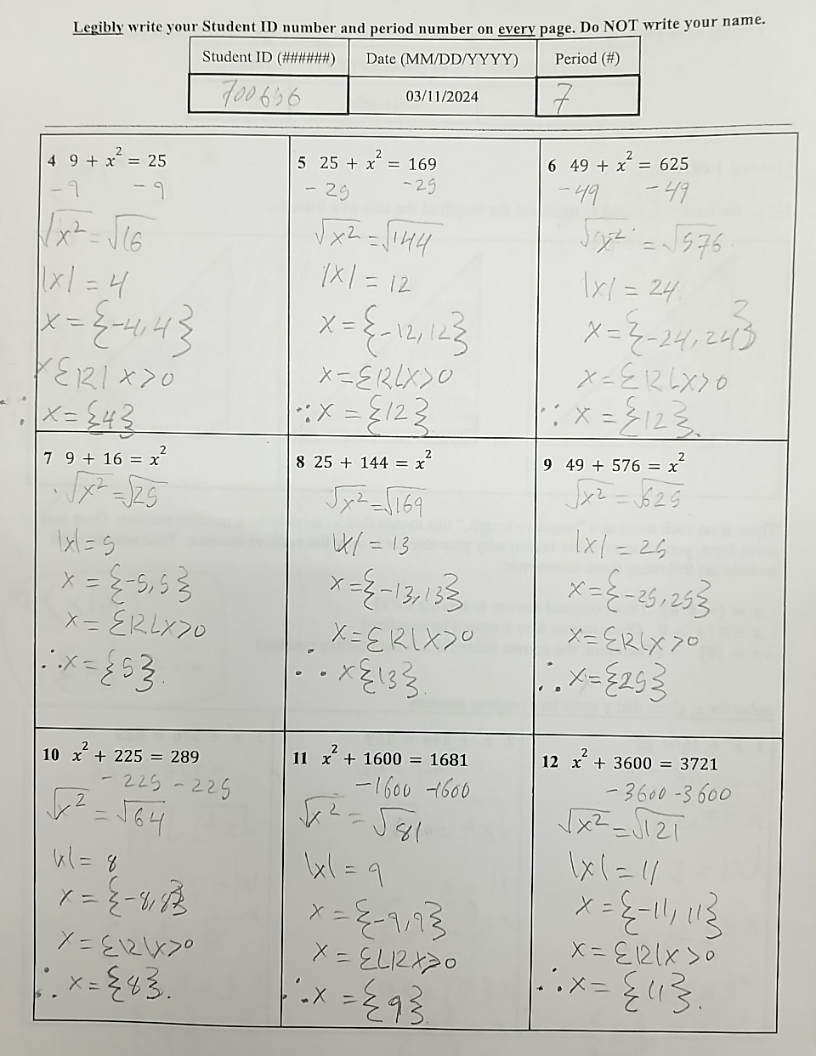 Legibly write your Student ID number and period number on every page. Do NOT write your name.
Student ID (######) Date (MM/DD/YYYY) Period (#)
700656 03/11/2024 7
4 9 + x² = 25
-9 -9
√x² = √16
|x| = 4
x = {-4, 4}
x{ℝ| x>0
∴ x = {4}
5 25 + x² = 169
-25 -25
√x² = √144
|x| = 12
x = {-12, 12}
x = ∈ℝ|x>0
∴ x = {12}.
6 49 + x² = 625
-49 -49
√x² = √576
|x| = 24
x = {-24, 24}
x = ∈ℝ|x>0
∴ x = {12}.
7 9 + 16 = x²
√x² = √25
|x| = 5
x = {-5, 5}
x = ∈ℝ|x>0
∴ x = {5}.
8 25 + 144 = x²
√x² = √169
|x| = 13
x = {-13, 13}
x = ∈ℝ|x>0
∴ x{13}.
9 49 + 576 = x²
√x² = √625
|x| = 25
x = {-25, 25}
x = ∈ℝ|x>0
∴ x = {25}
10 x² + 225 = 289
-225 -225
√x² = √64
|x| = 8
x = {-8, 8}
x = ∈ℝ|x>0
∴ x = {8}.
11 x² + 1600 = 1681
-1600 -1600
√x² = √81
|x| = 9
x = {-9, 9}
x = ∈|ℝx>0
∴ x = {9}
12 x² + 3600 = 3721
-3600 -3600
√x² = √121
|x| = 11
x = {-11, 11}
x = ∈ℝ|x>0
∴ x = {11}.